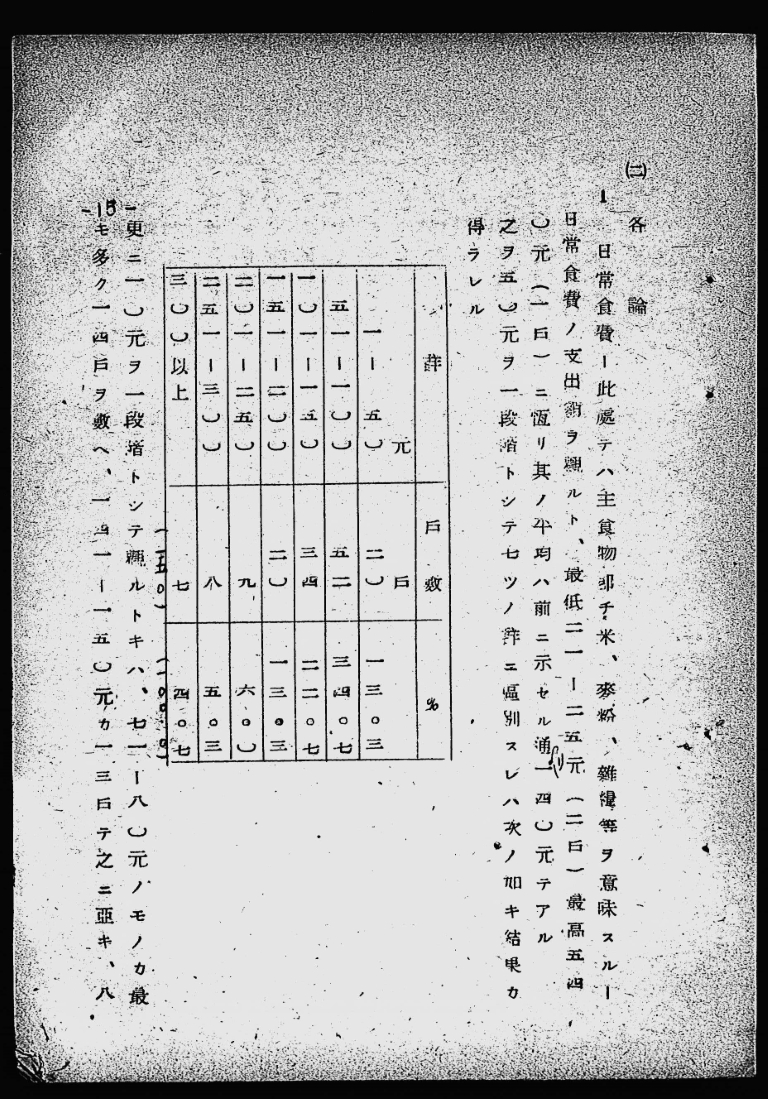 ㈡ 各論
1 日常食費ー此處テハ主食物卽チ米、麥粉、雜糧等ヲ意味スルー
日常食費ノ支出額ヲ觀ルト、最低二一ー二五元(二戶)最高五四
〇元(一戶)ニ亙リ其ノ平均ハ前ニ示セル通リ一四〇元テアル
之ヲ五〇元ヲ一段階トシテ七ツノ群ニ區別スレハ次ノ如キ結果カ
得ラレル
群 戶數 %
一ー五〇元 二〇戶 一三。三
五一ー一〇〇 五二 三四。七
一〇一ー一五〇 三四 二二。七
一五一ー二〇〇 二〇 一三。三
二〇一ー二五〇 九 六。〇
二五一ー三〇〇 八 五。三
三〇〇以上 七 四。七
(一五〇) (一〇〇.〇)
更ニ一〇元ヲ一段階トシテ觀ルトキハ、七一ー八〇元ノモノカ最
モ多ク一四戶ヲ數ヘ、一四一ー一五〇元カ一三戶テ之ニ亞キ、八
-15-